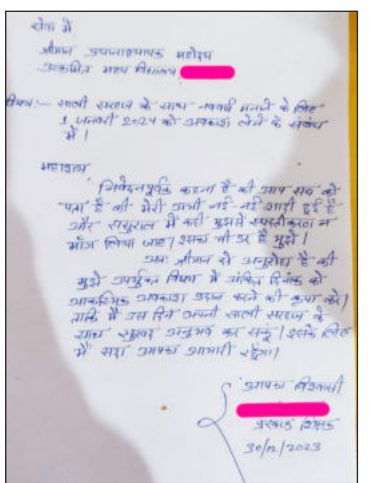 सेवा में
श्रीमान प्रधानाध्यापक महोदय
उत्क्रमित मध्य विद्यालय
विषय:- साली सरहज के साथ नववर्ष मनाने के लिए
1 जनवरी 2024 को अवकाश लेने के संबंध
में।
महाशय
निवेदनपूर्वक कहना है की आप सब को
पता है की मेरी अभी नई-नई शादी हुई है
और ससुराल में कहीं मुझसे स्पष्टीकरण न
माँग लिया जाए। इसका भी डर है मुझे।
अतः श्रीमान से अनुरोध है की
मुझे उपर्युक्त विषय में अंकित दिनांक को
आकस्मिक अवकाश प्रदान करने की कृपा करें।
ताकि मैं उस दिन अपनी साली सरहज के
साथ सुखद अनुभव कर सकूं। इसके लिए
मैं सदा आपका आभारी रहूँगा।
आपका विश्वासी
शिक्षक
30/12/2023